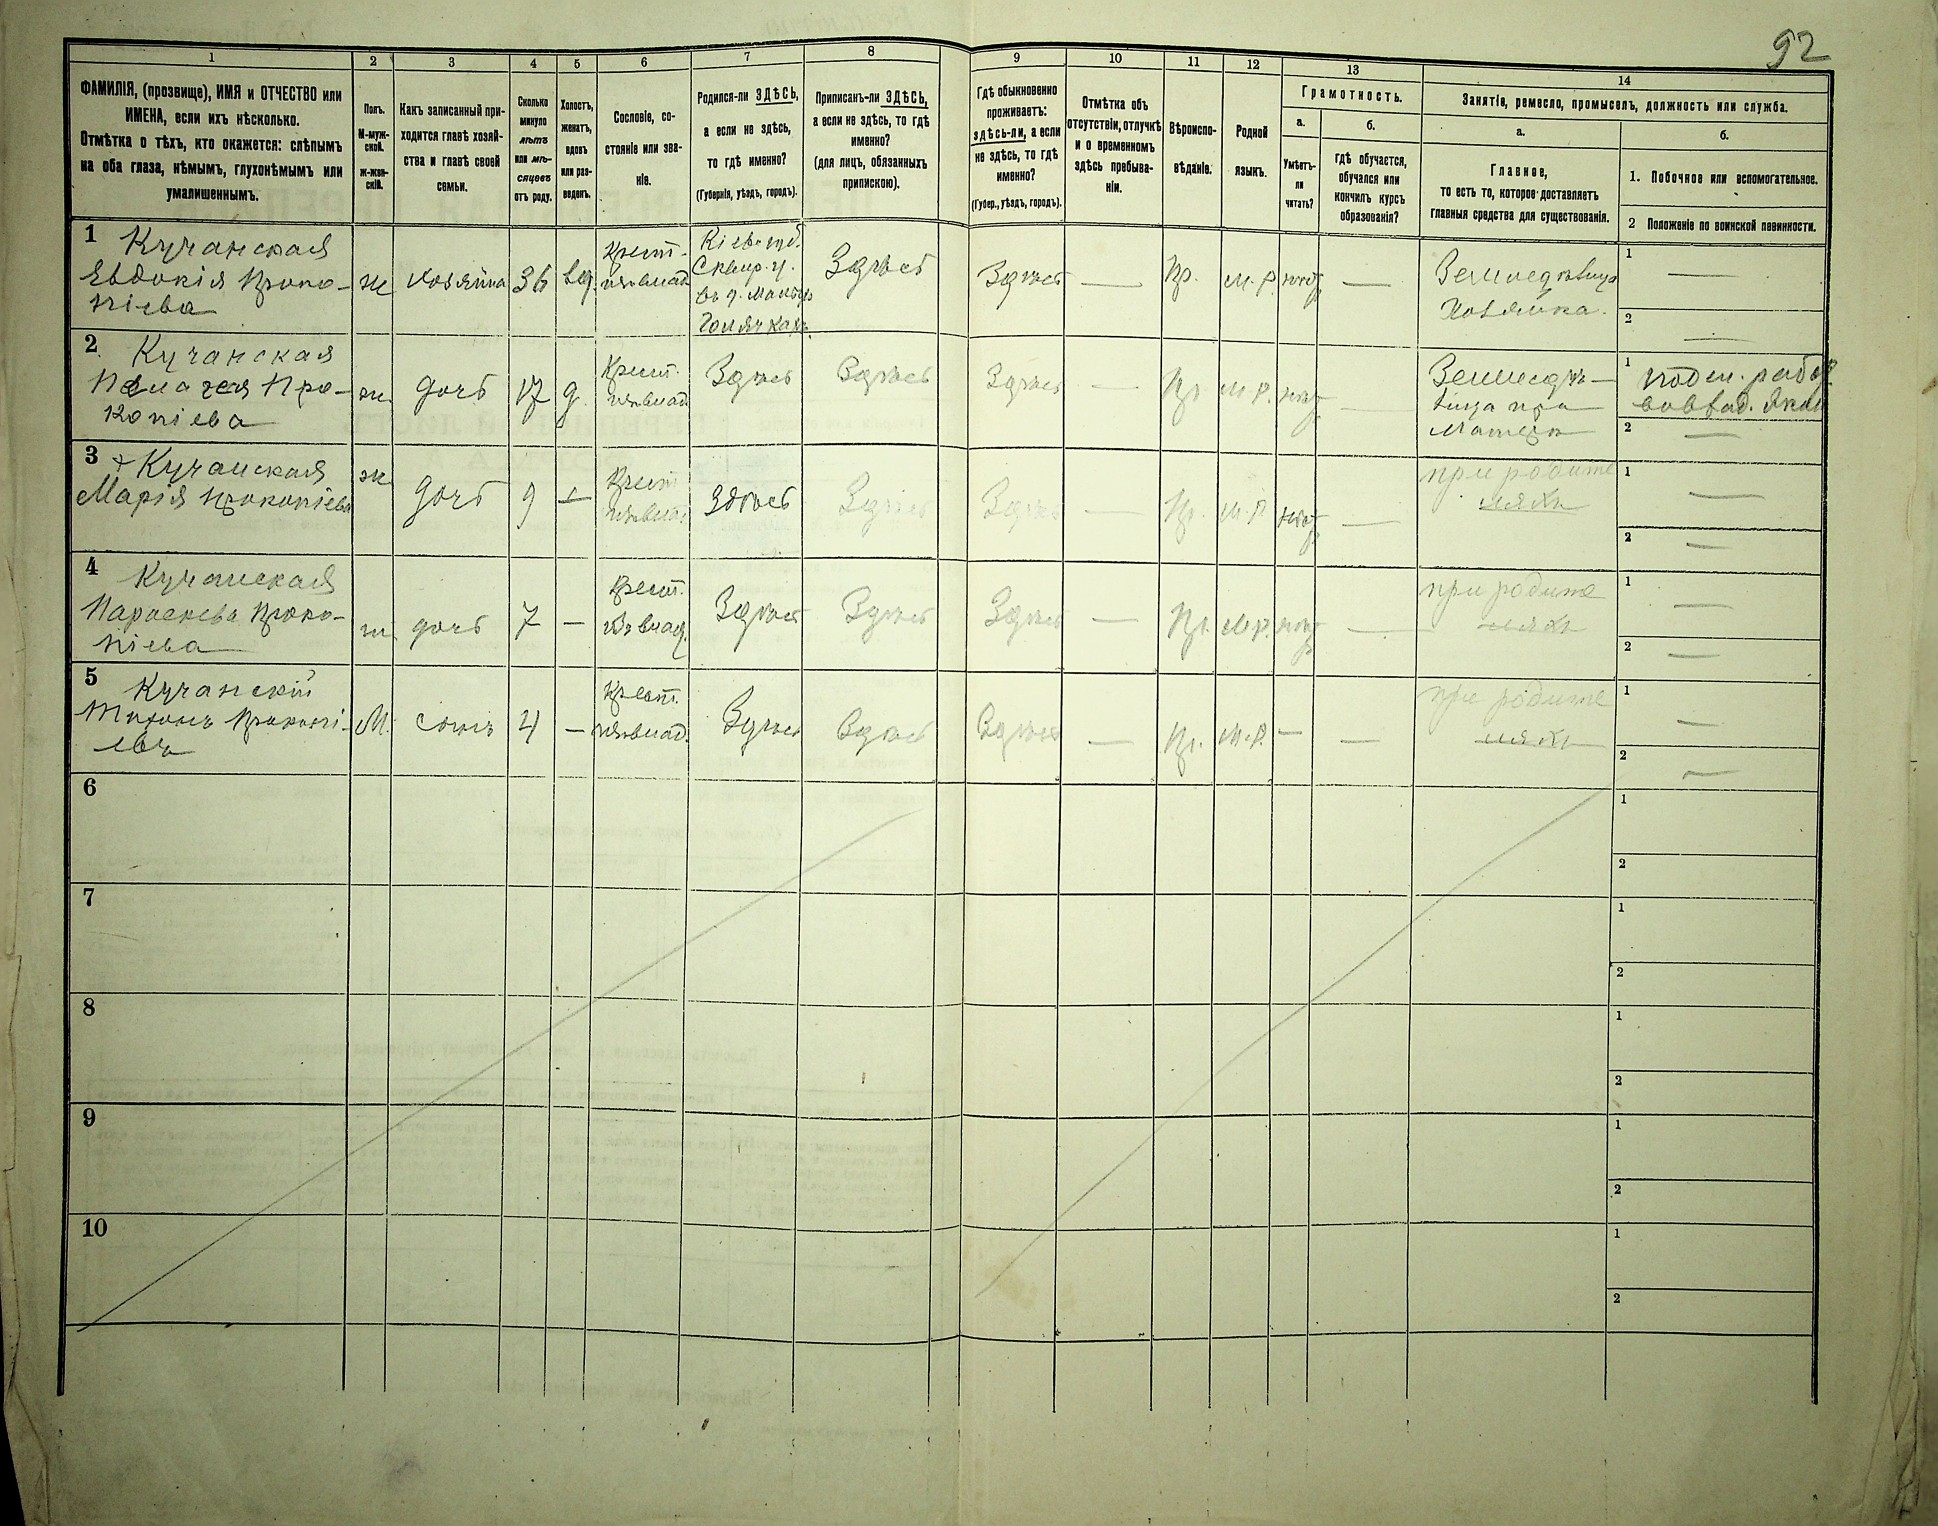 92
1
2
3
4
5
6
7
8
9
10
11
12
13
14
ФАМИЛІЯ, (прозвище), ИМЯ и ОТЧЕСТВО или
ИМЕНА, если ихъ нѣсколько.
Отмѣтка о тѣхъ, кто окажется: слѣпымъ
на оба глаза, нѣмымъ, глухонѣмымъ или
умалишеннымъ.
Полъ.
М-муж-
ской.
ж-жен-
скій.
Какъ записанный при-
ходится главѣ хозяй-
ства и главѣ своей
семьи.
Сколько
минуло
лѣтъ
или мѣ-
сяцевъ
отъ роду.
Холостъ,
женатъ,
вдовъ
или раз-
веденъ.
Сословіе, со-
стояніе или зва-
ніе.
Родился-ли ЗДѢСЬ,
а если не здѣсь,
то гдѣ именно?
(Губернія, уѣздъ, городъ).
Приписанъ-ли ЗДѢСЬ,
а если не здѣсь, то гдѣ
именно?
(для лицъ, обязанныхъ
припискою).
Гдѣ обыкновенно
проживаетъ:
здѣсь-ли, а если
не здѣсь, то гдѣ
именно?
(Губер., уѣздъ, городъ).
Отмѣтка объ
отсутствіи, отлучкѣ
и о временномъ
здѣсь пребыва-
ніи.
Вѣроиспо-
вѣданіе.
Родной
языкъ.
Грамотность.
а.
б.
Умѣетъ-
ли
читать?
гдѣ обучается,
обучался или
кончилъ курсъ
образованія?
Занятіе, ремесло, промыселъ, должность или служба.
а.
б.
Главное,
то есть то, которое доставляетъ
главныя средства для существованія.
1. Побочное или вспомогательное.
2 Положеніе по воинской повинности.
1
Кучанская
Евдокія Проко-
піева
ж
хозяйка
36
вд.
Крест.
Кіев. губ.
Сквир. у.
Здѣсь
Здѣсь
—
Пр.
М.Р.
нѣтъ
—
Земледѣлица
Хозяйка.
1 —
2 —
2
Кучанская
Пелагея Про-
копіева
ж
дочь
17
д.
Крест.
Здѣсь
Здѣсь
Здѣсь
—
Пр.
М.Р.
нѣтъ
—
Земледѣ-
лица при
матери
1 поден. работ.
2 —
3
Кучанская
Марія Прокопіева
ж
дочь
9
—
Крест.
Здѣсь
Здѣсь
Здѣсь
—
Пр.
М.Р.
нѣтъ
—
при родите
ляхъ
1 —
2 —
4
Кучанская
Параскева Проко-
піева
ж
дочь
7
—
Крест.
Здѣсь
Здѣсь
Здѣсь
—
Пр.
М.Р.
нѣтъ
—
при родите
ляхъ
1 —
2 —
5
Кучанскій
Тихонъ Прокопі-
евъ
М.
сынъ
4
—
Крест.
Здѣсь
Здѣсь
Здѣсь
—
Пр.
М.Р.
—
—
при родите
ляхъ
1 —
2 —
6
1
2
7
1
2
8
1
2
9
1
2
10
1
2